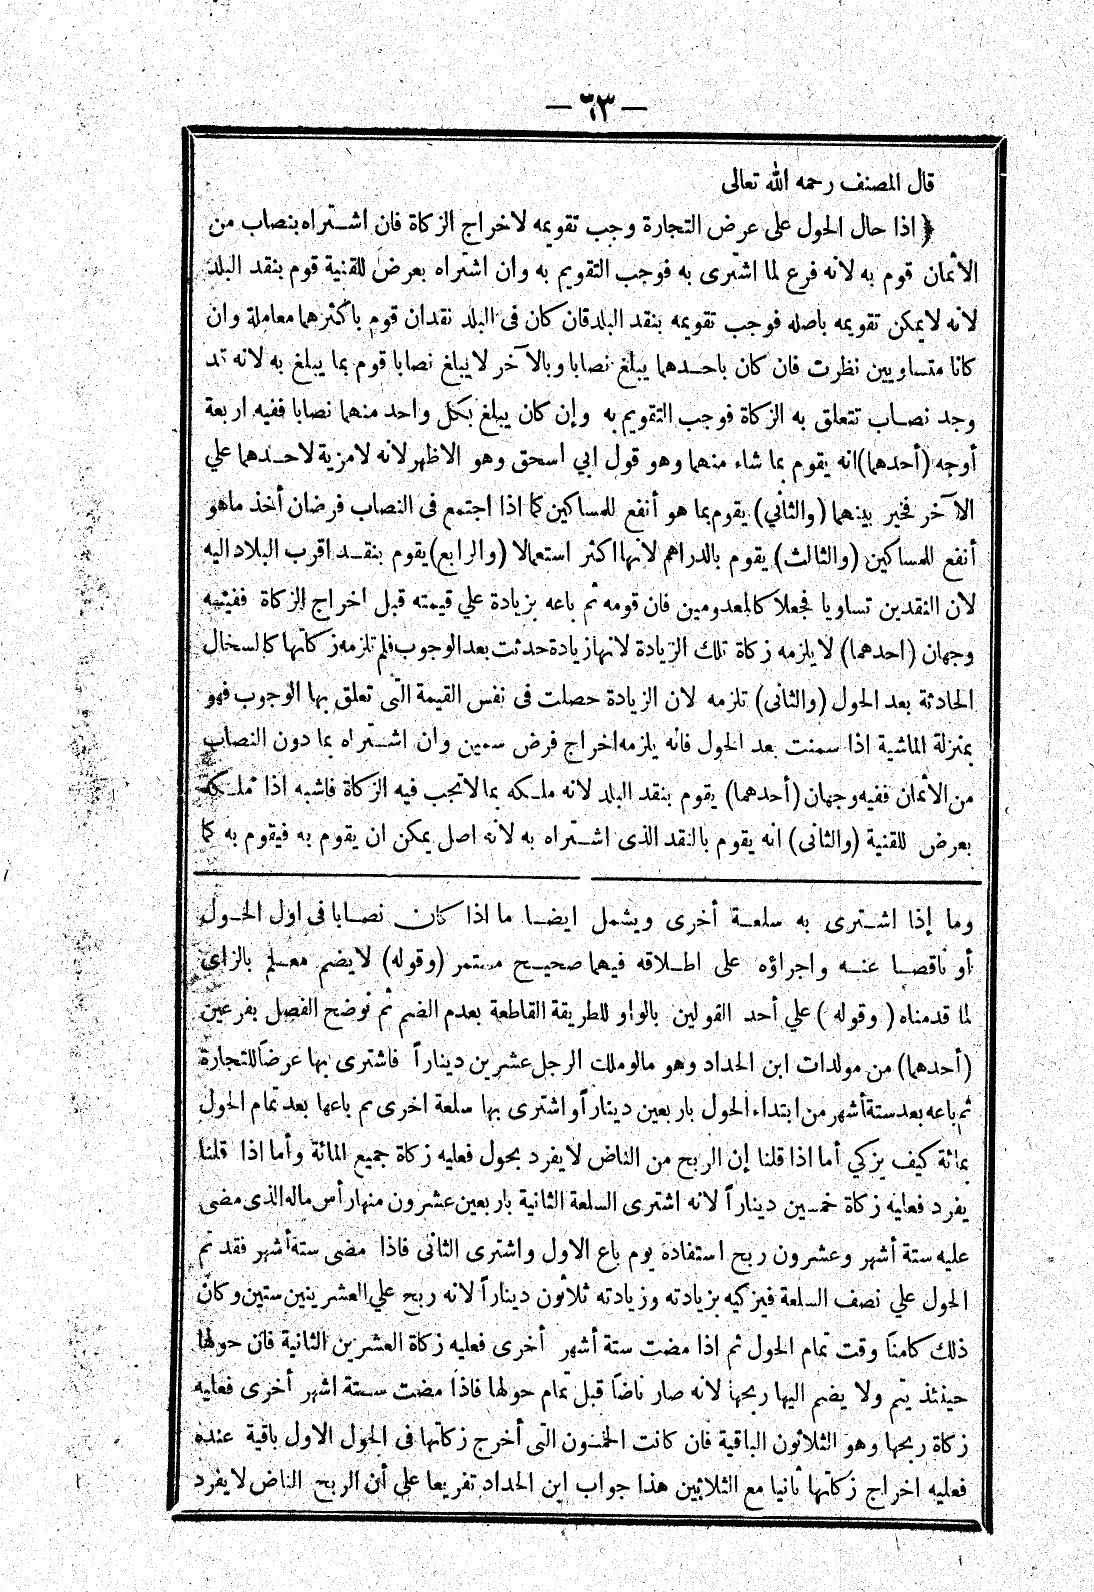 — ٦٣ —
قال المصنف رحمه الله تعالى
﴿ اذا حال الحول على عرض التجارة وجب تقويمه لاخراج الزكاة فان اشـتراه بنصاب من
الأثمان قوم به لانه فرع لما اشترى به فوجب التقويم به وان اشتراه بعرض للقنية قوم بنقد البلد
لانه لايمكن تقويمه باصله فوجب تقويمه بنقد البلدفان كان فى البلد نقدان قوم باكثرهما معاملة وان
كانا متساويين نظرت فان كان باحـدهما يبلغ نصابا وبالآخر لايبلغ نصابا قوم بما يبلغ به لانه قد
وجد نصـاب تتعلق به الزكاة فوجب التقويم به وإن كان يبلغ بكل واحد منهما نصابا ففيه اربعة
أوجه (أحدهما)انه يقوم بما شاء منهما وهو قول ابي اسحق وهو الاظهرلانه لامزية لاحـدهما علي
الآخر فخير بينهما (والثاني) يقوم بما هو أنفع للمساكين كما اذا اجتمع فى النصاب فرضان أخذ ماهو
أنفع للمساكين (والثالث) يقوم بالدراهم لانها اكثر استعمالا (والرابع)يقوم بنقـد اقرب البلاد اليه
لان النقدين تساويا فجعلا كالمعدومين فان قومه ثم باعه بزيادة علي قيمته قبل اخراج الزكاة ففيه
وجهان (احدهما) لا يلزمه زكاة تلك الزيادة لانهازيادةحدثت بعدالوجوب فلم تلزمه زكاتها كالسخال
الحادثة بعد الحول (والثانى) تلزمه لان الزيادة حصلت فى نفس القيمة التى تعلق بها الوجوب فهو
بمنزلة الماشية اذا سمنت بعد الحول فانه يلزمه اخراج فرض سمين وان اشـتراه بما دون النصاب
من الأثمان ففيه وجهان (أحدهما) يقوم بنقد البلد لانه ملـكه بمالاتجب فيه الزكاة فاشبه اذا ملـكه
بعرض للقنية (والثانى) انه يقوم بالنقد الذى اشـتراه به لانه اصل يمكن ان يقوم به فيقوم به كما
وما إذا اشـترى به سلعـة أخرى ويشمل ايضـا ما اذا كان نصـابا فى اول الحـول
أو ناقصـا عنـه واجراؤه على اطـلاقه فيهما صحيـح مستمر (وقوله) لايضم معـلم بالزاى
لما قدمناه ( وقوله ) علي أحد القولين بالواو للطريقة القاطعة بعدم الضم ثم نوضح الفصل بفرعين
(أحدهما) من مولدات ابن الحداد وهو مالوملك الرجل عشرين ديناراً فاشترى بها عرضاً للتجارة
ثم باعه بعدستة أشهر من ابتداء الحول باربعين ديناراً واشترى بها سلعة اخرى ثم باعها بعد تمام الحول
بمائة كيف يزكي أما اذا قلنا إن الربح من الناض لا يفرد بحول فعليه زكاة جميع المائة وأما اذا قلنا
يفرد فعليه زكاة خمسين ديناراً لانه اشترى السلعة الثانية باربعين عشرون منها رأس ماله الذى مضى
عليه ستة أشهر وعشرون ربح استفاده يوم باع الاول واشترى الثانى فاذا مضى ستة أشهر فقد تم
الحول علي نصف السلعة فيزكيه بزيادته وزيادته ثلاثون ديناراً لانه ربح علي العشرينين ستين وكان
ذلك كامناً وقت تمام الحول ثم اذا مضت ستة أشهر أخرى فعليه زكاة العشرين الثانية فان حولها
حينئذ يتم ولا يضم اليها ربحها لانه صار ناضاً قبل تمام حولها فاذا مضت سـتة اشهر أخرى فعليه
زكاة ربحها وهو الثلاثون الباقية فان كانت الخمسون التى أخرج زكاتها فى الحول الاول باقية عنده
فعليه اخراج زكاتها ثانيا مع الثلاثين هذا جواب ابن الحداد تفريعا على أن الربح الناض لا يفرد